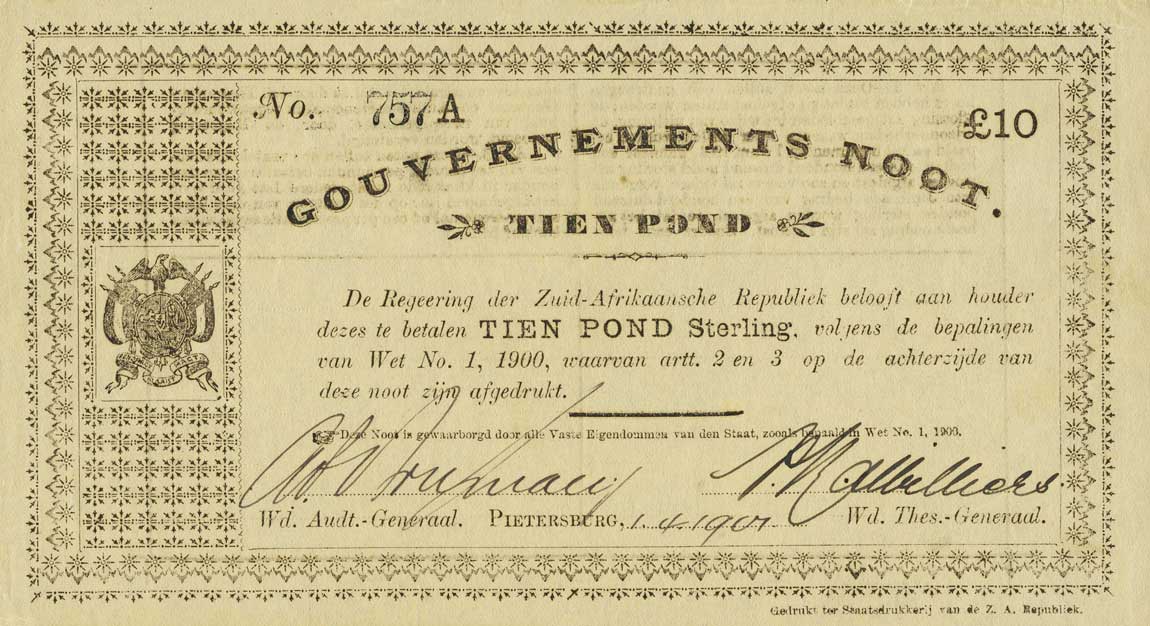 No. 757A
£10
GOUVERNEMENTS NOOT.
TIEN POND
De Regeering der Zuid-Afrikaansche Republiek belooft aan houder
dezes te betalen TIEN POND Sterling, volgens de bepalingen
van Wet No. 1, 1900, waarvan artt. 2 en 3 op de achterzijde van
deze noot zijn afgedrukt.
Deze Noot is gewaarborgd door alle Vaste Eigendommen van den Staat, zooals bepaald in Wet No. 1, 1900.
Wd. Audt.-Generaal. PIETERSBURG, 1.4.1901 Wd. Thes.-Generaal.
Gedrukt ter Staatsdrukkerij van de Z. A. Republiek.